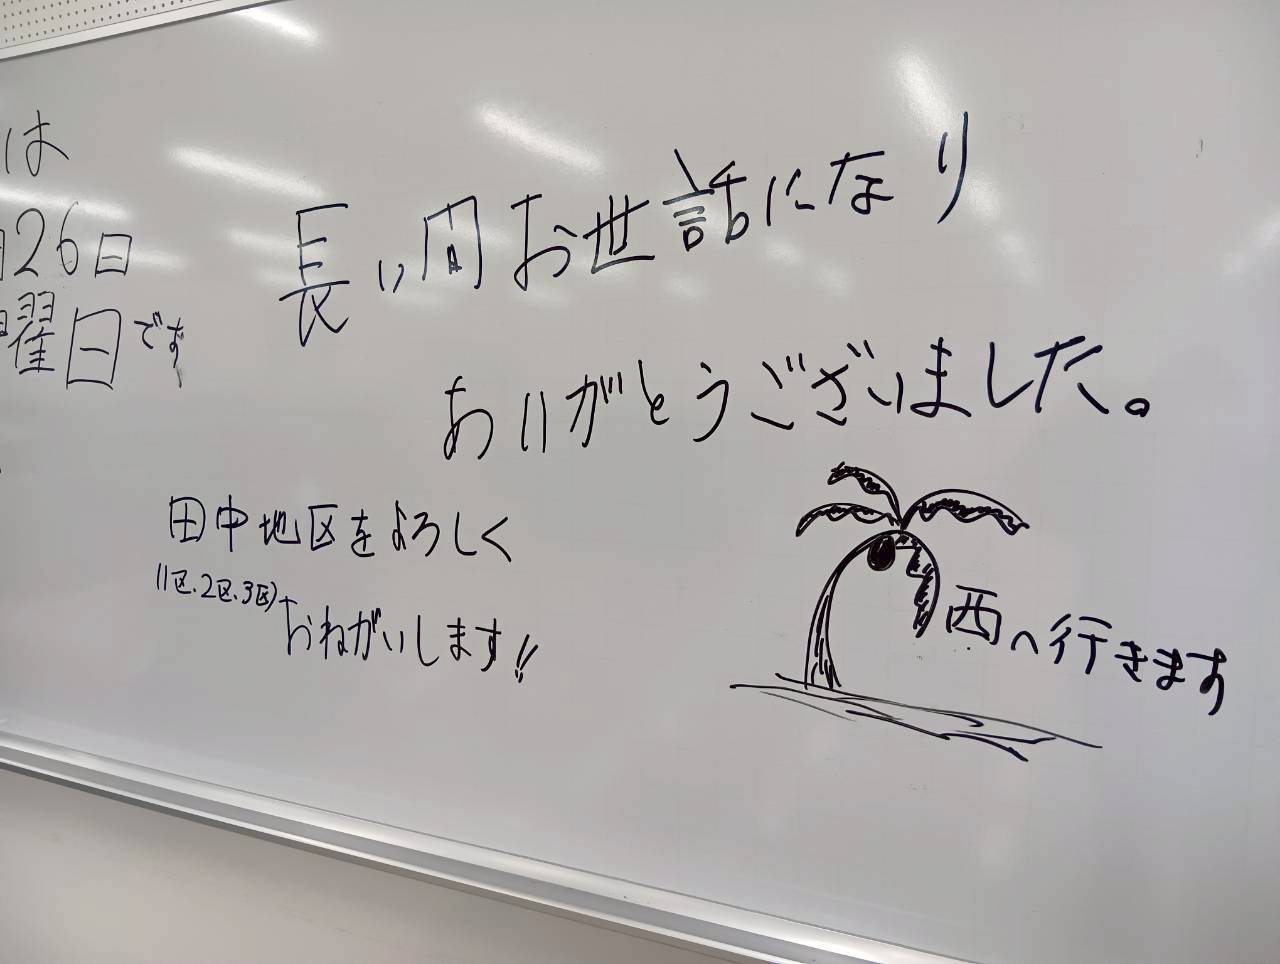 は
26日
曜日です
長い間お世話になり
ありがとうございました。
田中地区をよろしく
(1区、2区、3区)
おねがいします!!
西へ行きます